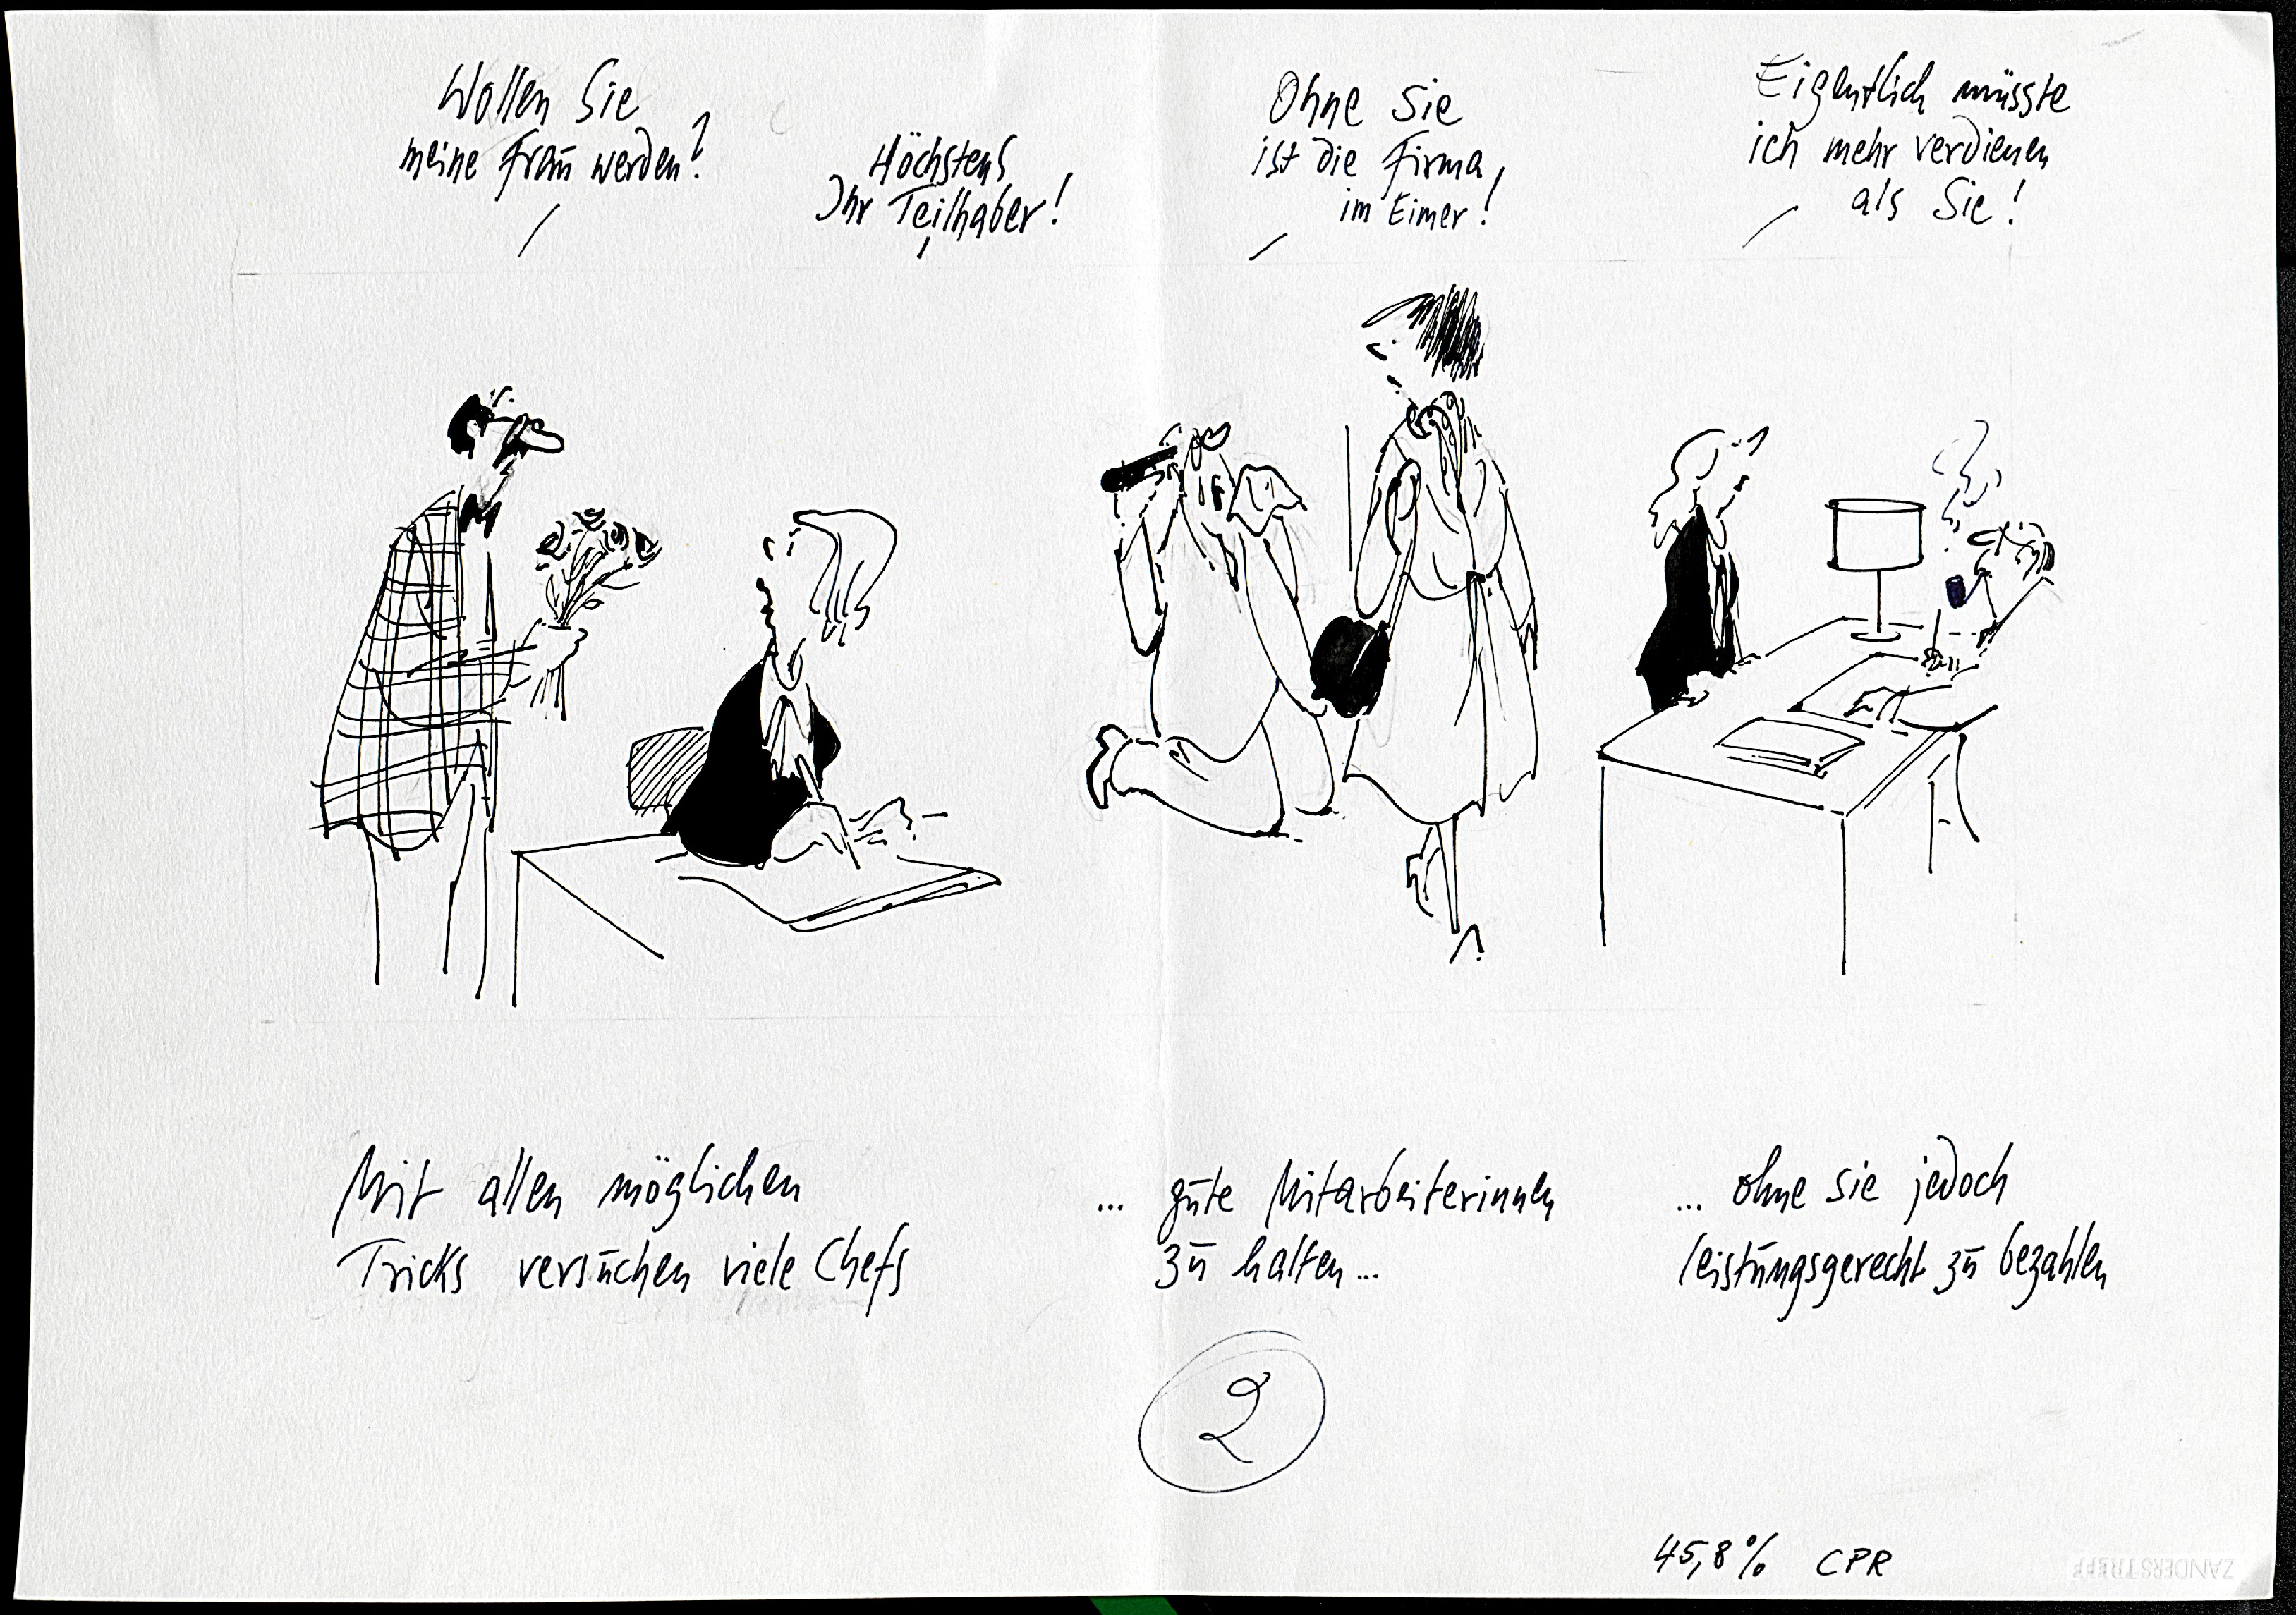 Wollen Sie
meine Frau werden?
Höchstens
Ihr Teilhaber!
Ohne Sie
ist die Firma
im Eimer!
Eigentlich müsste
ich mehr verdienen
als Sie!
Mit allen möglichen
Tricks versuchen viele Chefs
... gute Mitarbeiterinnen
zu halten...
... ohne sie jedoch
leistungsgerecht zu bezahlen
2
45,8% CPR
ZANDERSTREFF